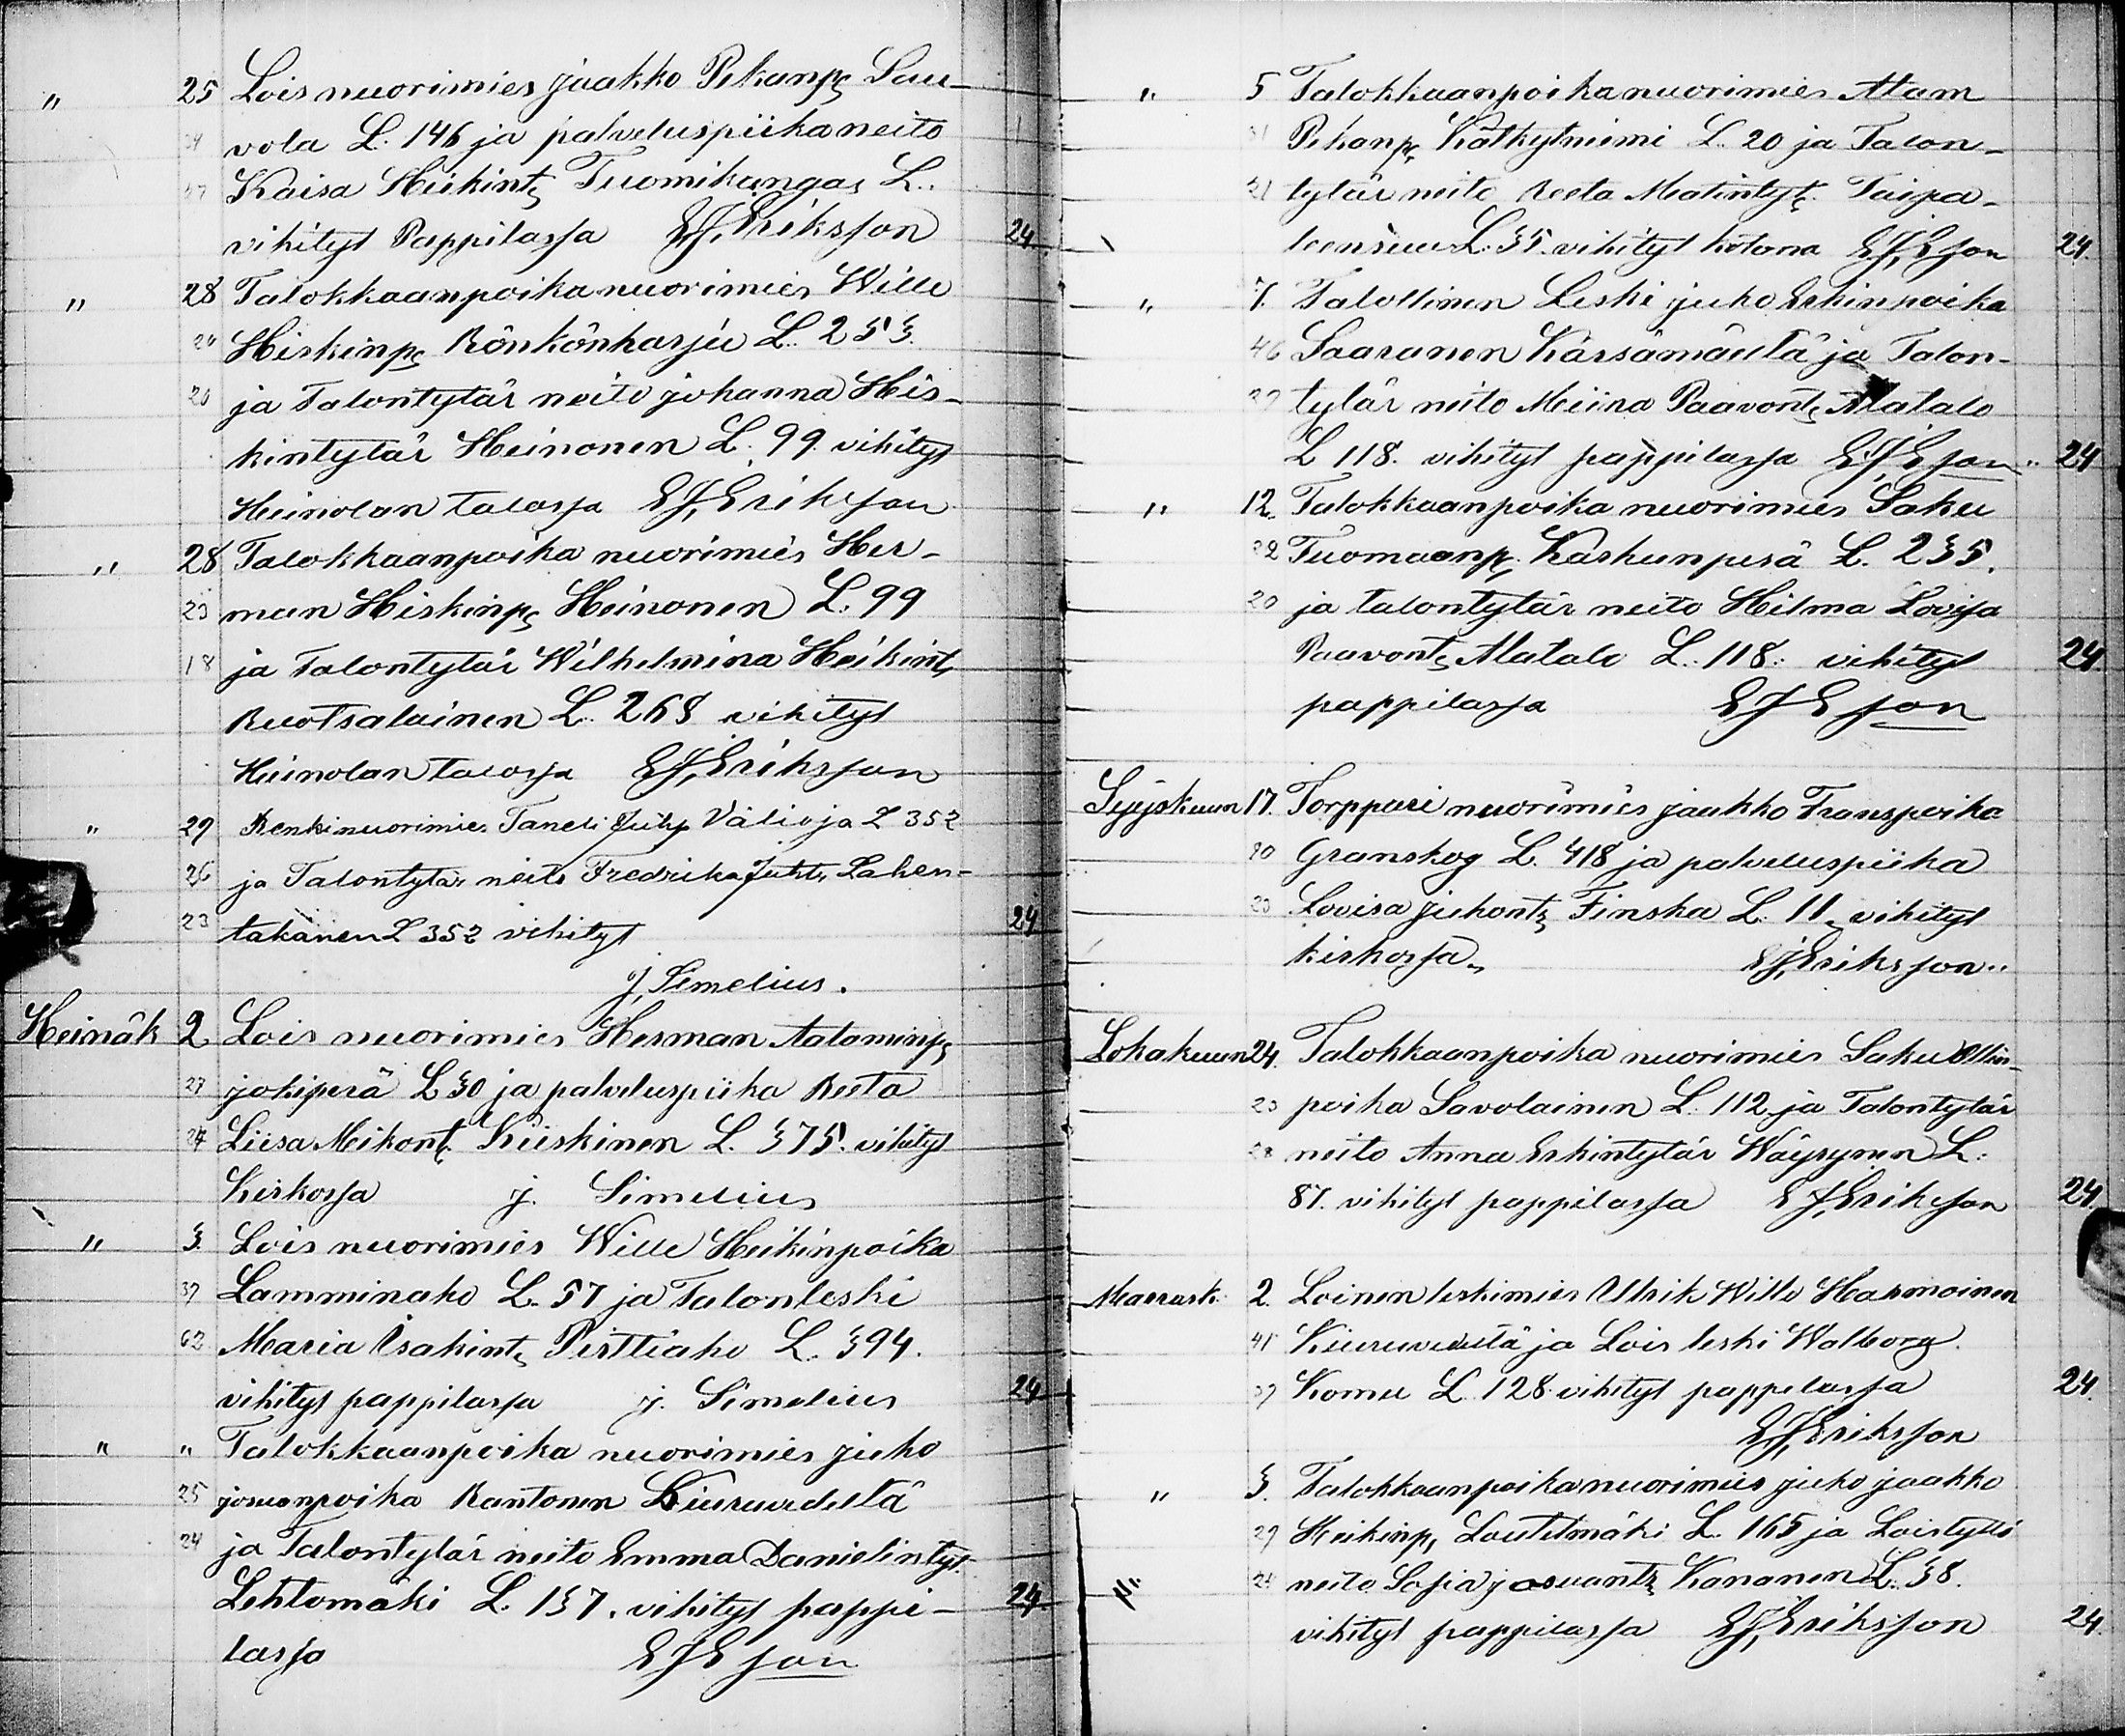 " 25 Lois nuorimies Jaakko Pekanp. Sau-
34 vola L. 146 ja palveluspiika neito
Kaisa Heikint. Tuomikangas L.
vihityt Pappilassa EJ, Eriksson 24
" 28 Talokkaanpoika nuorimies Wille
24 Hiskinp. Rönkönharju L. 253.
20 ja Talontytär neito Johanna His-
kintytär Heinonen L. 99. vihityt
Heinolan talossa EJ, Eriksson
" 28 Talokkaanpoika nuorimies Her-
23 man Hiskinp. Heinonen L. 99
18 ja Talontytär Wilhelmina Heikint.
Ruotsalainen L. 268 vihityt
Heinolan talossa EJ, Eriksson
" 29 Renki nuorimies Taneli Juhp. Välioja L 352
26 ja Talontytär neito Fredrika Juht. Lahen-
23 takanen L 352 vihityt 24
J. Simelius.
Heinäk 2 Lois nuorimies Herman Aataminp.
27 Jokiperä L 30 ja palveluspiika Reeta
24 Liisa Mikont. Kiiskinen L. 375. vihityt
Kirkossa J. Simelius
" 3. Lois nuorimies Wille Heikinpoika
37 Lamminaho L. 57 ja Talonleski
62 Maria Isakint. Pirttiaho L. 394.
vihityt pappilassa J. Simelius 24
" " Talokkaanpoika nuorimies Juho
25 Josuanpoika Rantonen Kiuruvedeltä
24 ja Talontytär neito Emma Danielintyt.
Lehtomäki L. 137. vihityt pappi- 24
lassa EJEsson
" 5 Talokkaanpoika nuorimies Atam
31 Pekanp. Kätkytniemi L. 20 ja Talon-
21 tytär neito Reeta Matintyt. Taipa-
leensuu L. 35. vihityt kotona EJ, Esson 24.
" 7. Talollinen Leski Juho Erkinpoika
46 Saaranen Kärsämäeltä ja Talon-
tytär neito Miina Paavont. Alatalo
L 118. vihityt pappilassa EJ, Esson 24
" 12. Talokkaanpoika nuorimies Saku
22 Tuomaanp. Karhunperä L. 235.
20 ja talontytär neito Hilma Lovisa
Paavont. Alatalo L. 118. vihityt 24.
pappilassa EJEsson
Syyskuun 17. Torppari nuorimies Jaakko Franspoika
20 Granskog L. 418 ja palveluspiika
23 Lovisa Juhont. Finska L. 11. vihityt
kirkossa. EJ, Eriksson
Lokakuun 24. Talokkaanpoika nuorimies Saku Ollin-
23 poika Savolainen L. 112 ja Talontytär
28 neito Anna Erkintytär Wäyrynen L.
87. vihityt pappilassa EJ, Eriksson 24.
Marrask. 2. Loinen leskimies Ulrik Wille Harmoinen
41 Kiuruvedeltä ja Lois leski Walborg
37 Komu L. 128. vihityt pappilassa 24.
EJ, Eriksson
" 3. Talokkaanpoika nuorimies Juho Jaakko
29 Heikinp. Lautilmäki L. 165 ja Loistyttö
24 neito Sofia Josuant. Kananen L. 38.
vihityt pappilassa EJ, Eriksson 24.